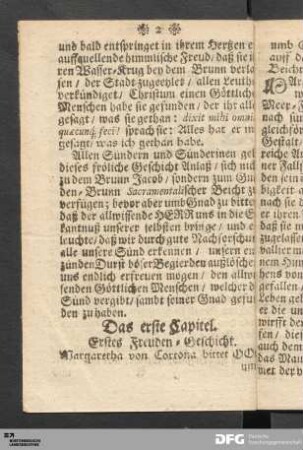 2
und bald entspringet in ihrem Hertzen e
auffquellende himmlische Freud / daß sie i
ren Wasser-Krug bey dem Brunn verla
sen / der Stadt zugeeylet / allen Leuthe
verkündiget / Christum einen Göttlich
Menschen habe sie gefunden / der ihr alle
gesagt / was sie gethan: dixit mihi omni
quæcunq; feci! sprach sie: Alles hat er m
gesagt / was ich gethan habe.
Allen Sündern und Sünderinen gel
dieses fröliche Geschicht Anlaß / sich nit
zu dem Brunn Jacob / sondern zum Gn
den-Brunn Sacramentalischer Beicht z
verfügen; bevor aber umb Gnad zu bitte
daß der allwissende HERR uns in die E
kantnuß unserer selbsten bringe / und e
leuchte / daß wir durch gute Nachforschun
alle unsere Sünd erkennen / unseren en
zünden Durst böser Begierden außlösche
uns endlich erfreuen mögen / den allwi
senden Göttlichen Menschen / welcher d
Sünd vergibt / sambt seiner Gnad gefun
den zu haben.
Das erste Capitel.
Erstes Freuden-Geschicht.
Margaretha von Cortona bittet GO
um
umb
auff d
Beicht
Meer /
nach
gleich
Gestalt /
reiche
ner
daß sie
zugelasse
vallier
nem
hens von
gefallen /
Leben
er die
wirfft
der vo
auch dem
das
met der
DFG Deutsche
Forschungsgemeinschaft